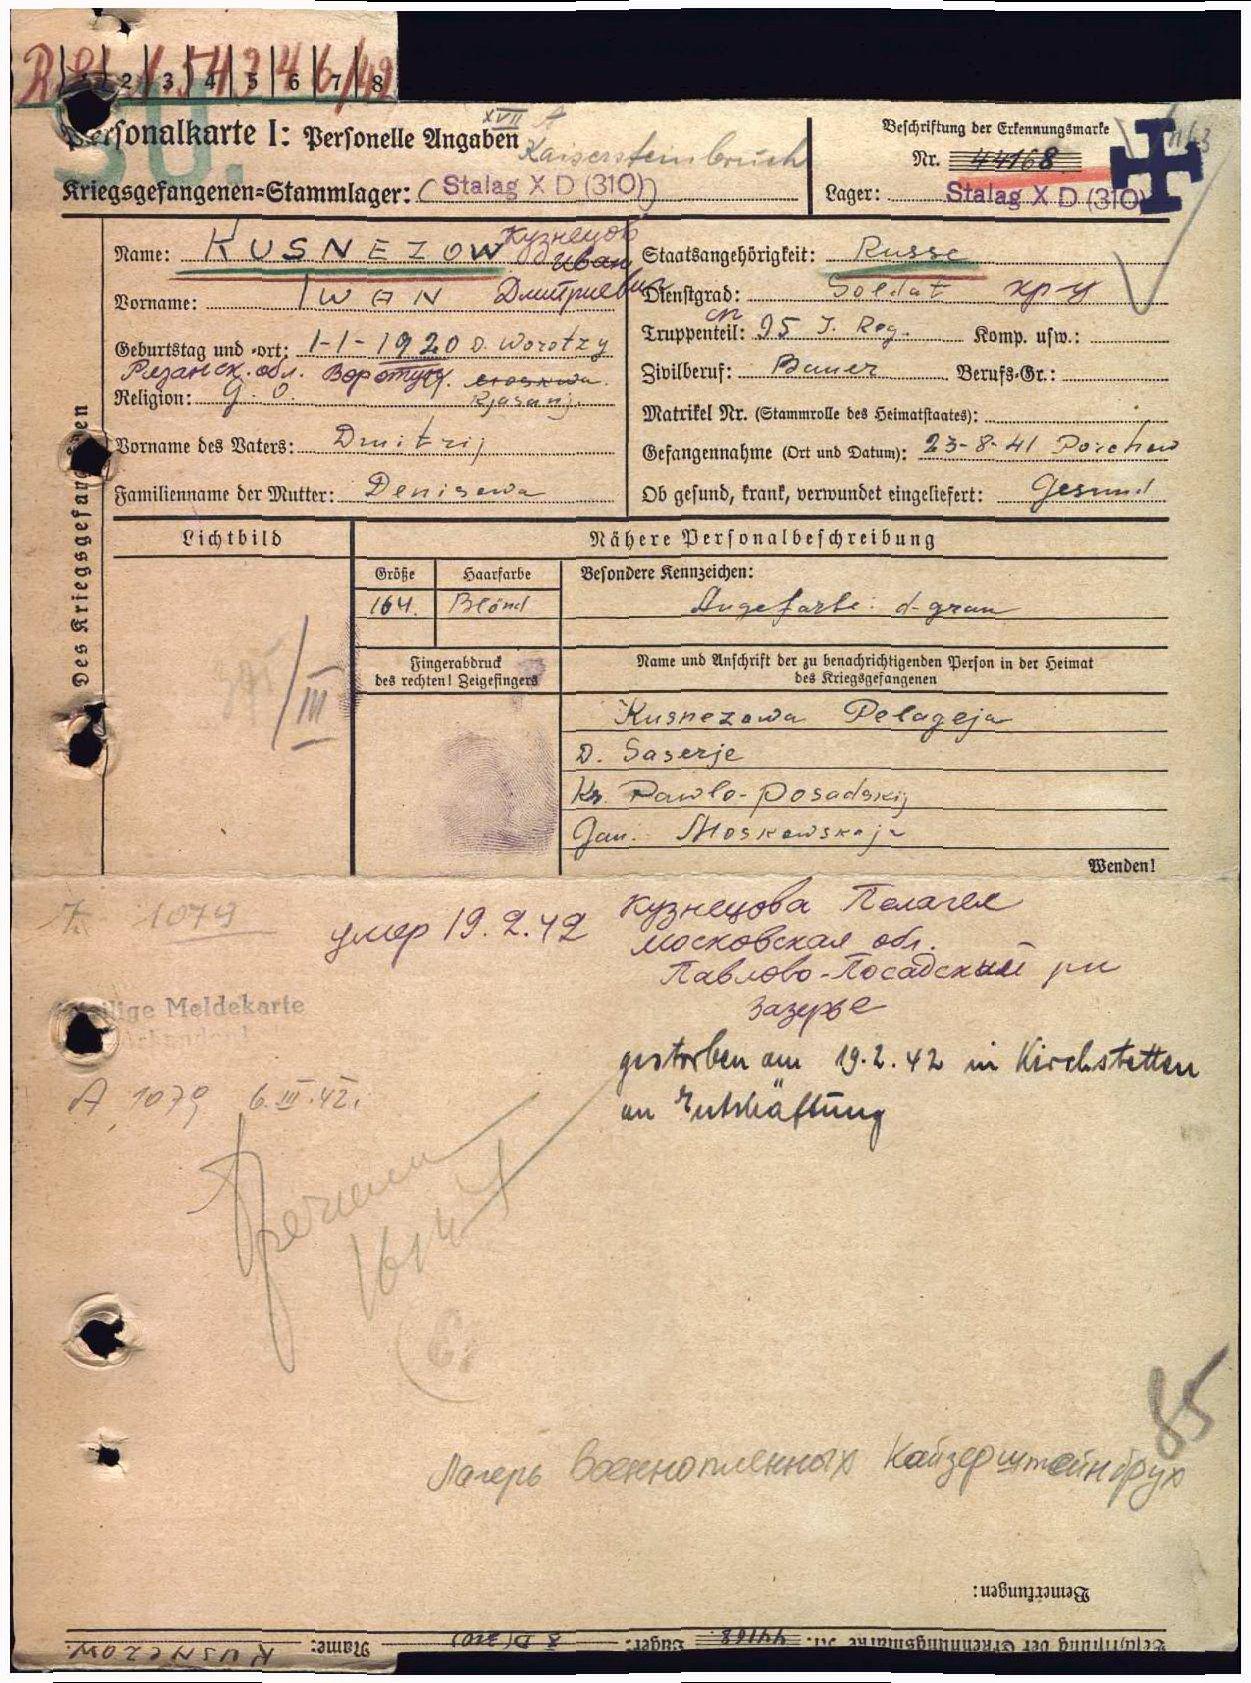 1 2 3 4 5 6 7 8
XVII A
Personalkarte I: Personelle Angaben
Kaisersteinbruch
Kriegsgefangenen=Stammlager: (Stalag X D (310))
Beschriftung der Erkennungsmarke
Nr. 44168
Lager: Stalag X D (310)
Des Kriegsgefangenen
Name: KUSNEZOW Кузнецов
Иван
Vorname: IWAN Дмитриевич
Geburtstag und =ort: 1-1-1920 D. Worotzy
Рязанск. обл.
Religion: G. O. Rjasanj.
Vorname des Vaters: Dmitrij
Familienname der Mutter: Denisowa
Staatsangehörigkeit: Russe
Dienstgrad: Soldat кр-ц
сп
Truppenteil: 95 I. Reg. Komp. usw.:
Zivilberuf: Bauer Berufs=Gr.:
Matrikel Nr. (Stammrolle des Heimatstaates):
Gefangennahme (Ort und Datum): 23-8-41 Porchow
Ob gesund, krank, verwundet eingeliefert: Gesund
Lichtbild
Nähere Personalbeschreibung
Größe Haarfarbe Besondere Kennzeichen:
164. Blond Augefarbe: d-grau
Fingerabdruck
des rechten! Zeigefingers
Name und Anschrift der zu benachrichtigenden Person in der Heimat
des Kriegsgefangenen
/III
Kusnezowa Pelageja
D. Saserje
Kr. Pawlo-Posadskij
Moskowskaja
Wenden!
1079
умер 19.2.42
Кузнецова Пелагея
Московская обл.
Павлово-Посадский рн
Зазерье
Meldekarte
gestorben am 19.2.42 in Kirchstetten
an Entkräftung
A 1079 6.III.42.
85
Лагерь военнопленных Кайзерштейнбрух
Bemerkungen:
Beschriftung der Erkennungsmarke Nr. 44168 Lager: X D (310) Name: KUSNEZOW.